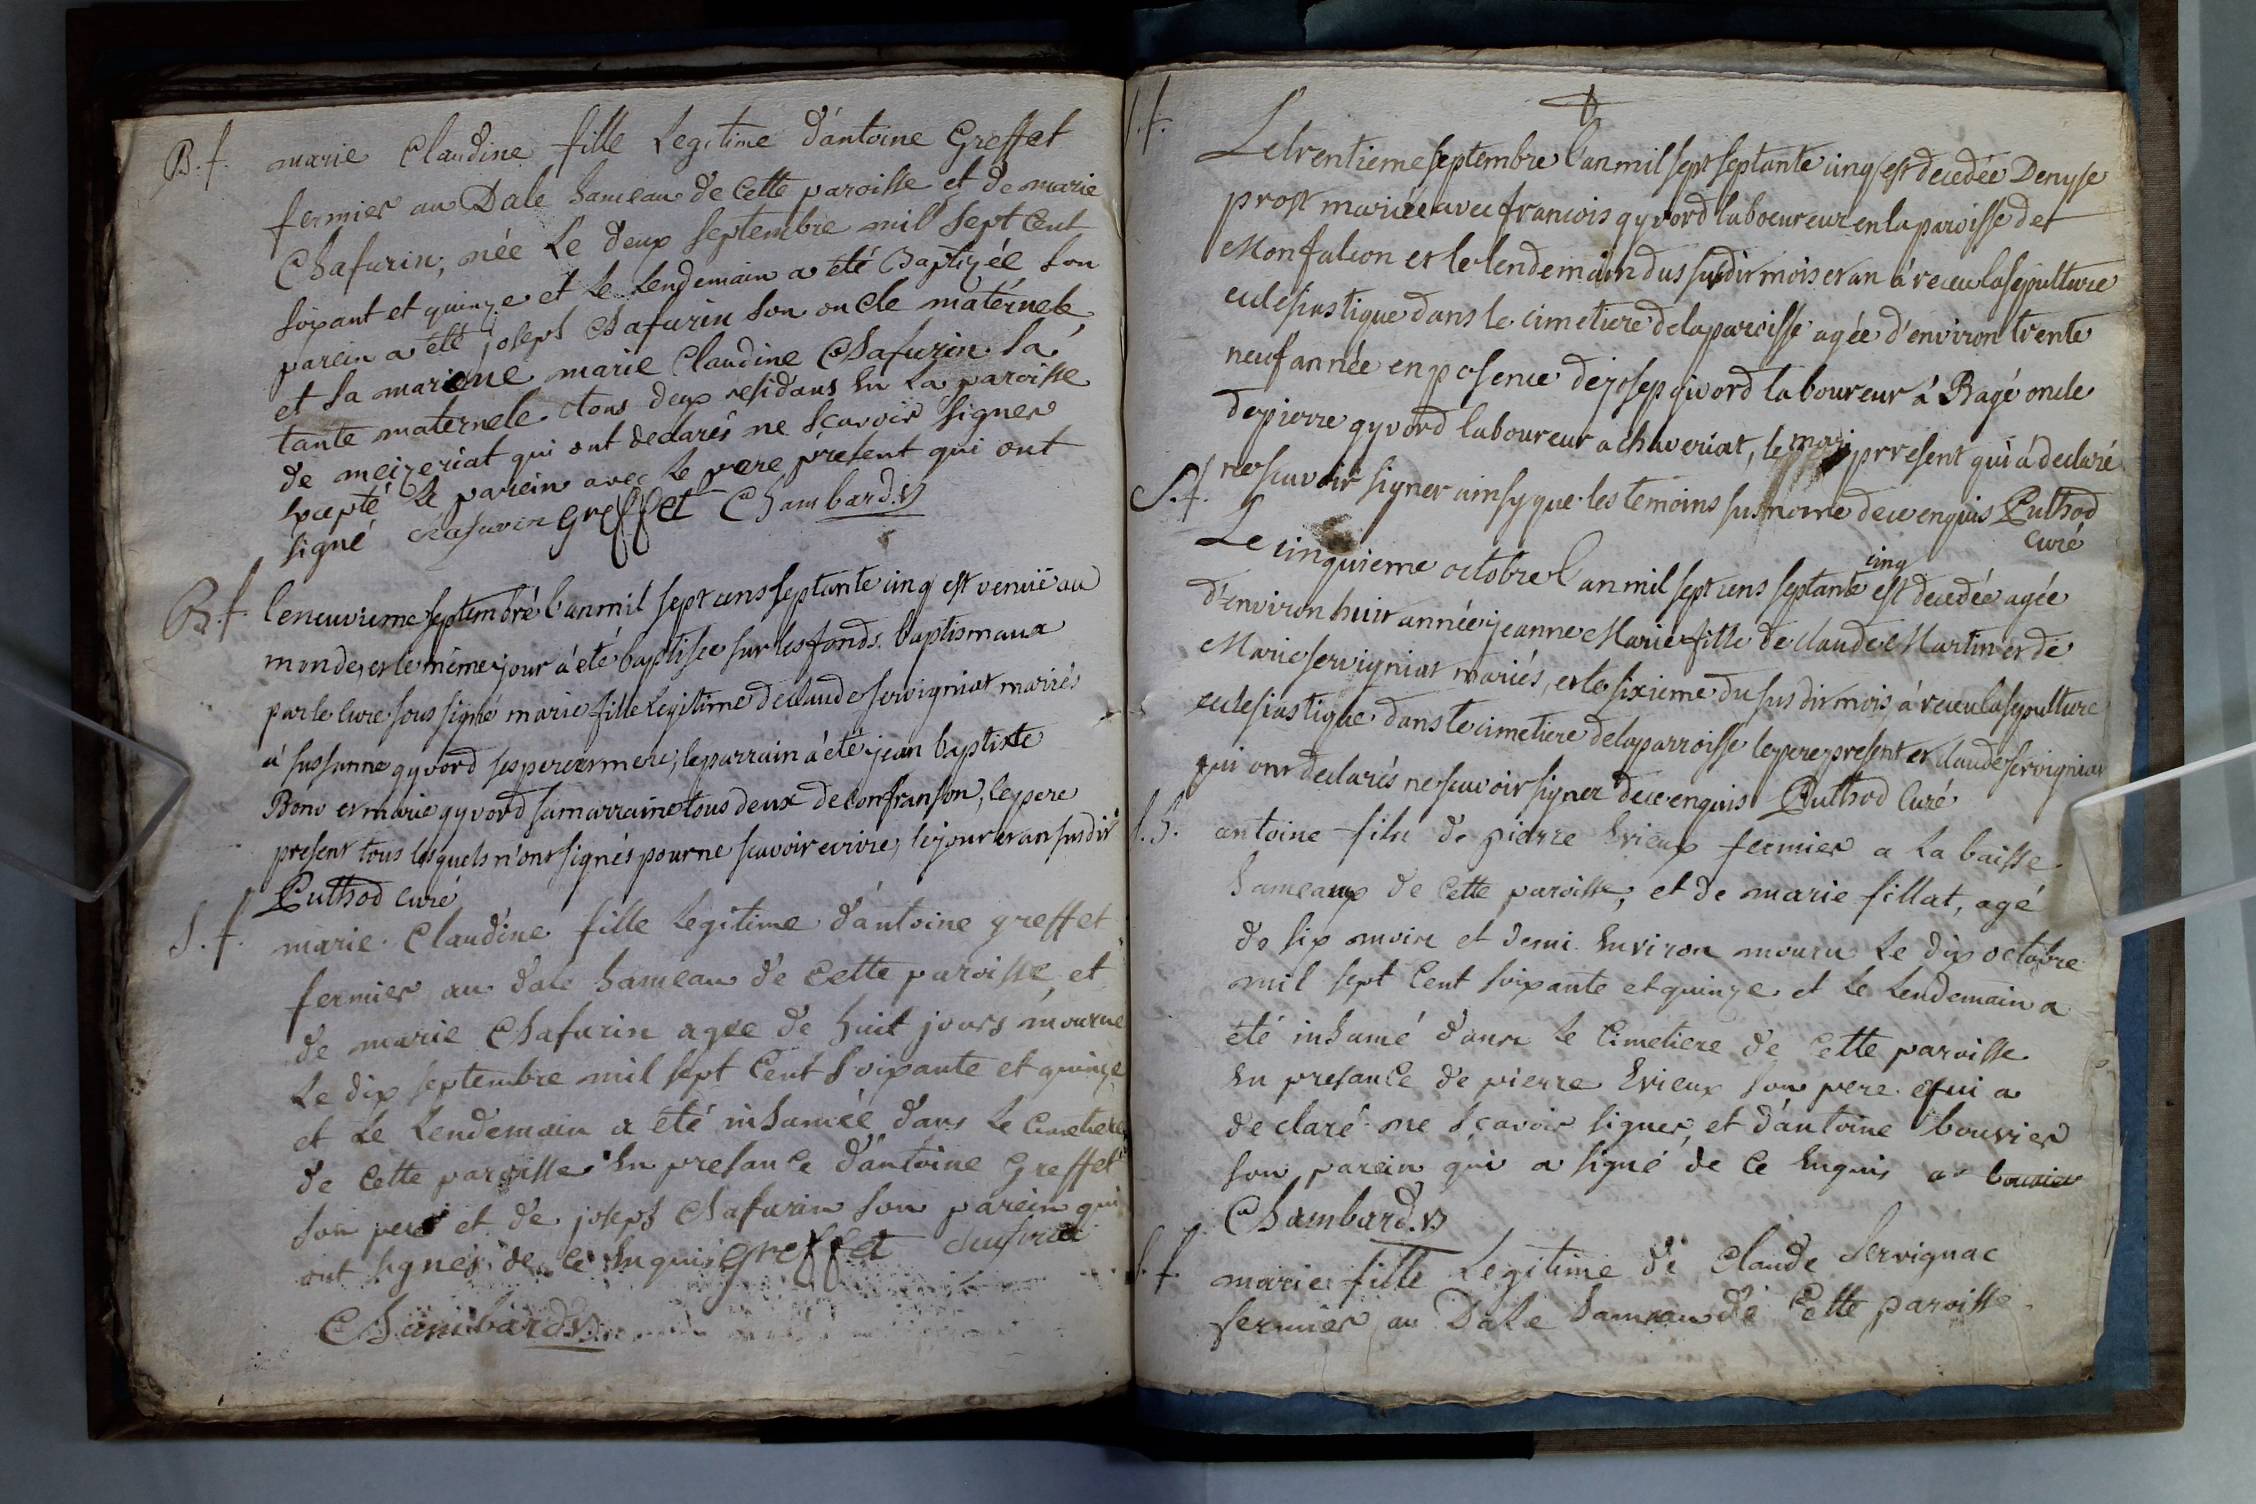 B. f. marie Claudine fille Legitime d'antoine Greffet
fermier au Dale hameau de Cette paroisse et de marie
Chafurin, née Le deux septembre mil sept Cent
soixant et quinze et Le Lendemain a été Baptizée son
parein a été joseph Chafurin son oncle matérnele,
et sa mareine marie Claudine Chafurin sa
tante maternele. tous deux residans En La paroisse
de meizeriat qui ont declarés ne sçavoir signer
Excepté Le parein avec Le pere présent qui ont
signé Chafurin greffet Chambard. v
B. f. le neuvieme septembre l'an mil sept cens septante cinq est venuë au
monde, et le même jour à eté baptisée sur les fonds baptismaux
par le Curé sous signé marie fille Legitime de claude servigniat mariés
à sussanne gyvord ses pere et mere, le parrain à été jean baptiste
Bono et marie gyvord sa marraine tous deux de confranson, le pere
present tous lesquels n'ont signés pour ne scavoir ecrire, le jour et an susdit
Puthod Curé
S. f. marie Claudine fille Legitime d'antoine greffet
fermier au dale hameau de Cette paroisse, et
de marie Chafurin agée de huit jours mourue
Le dix septembre mil sept Cent soixante et quinze
et Le Lendemain a été inhumée dans Le Cimetiere
de Cette paroisse En presance d'antoine Greffet
son pere et de joseph Chafurin son parein qui
ont signés de ce Enquis greffet
Chambard. v
S. f. Le trentieme septembre l'an mil sept septante cinq est decedée Denyse
prost mariée avec francois gyvord laboeureur en la paroisse de
Monfalcon et le lendemain dus susdit mois et an à receu la sepulture
eclesiastique dans le cimetiere de la paroisse agée d'environ trente
neuf année en posence de josep givord laboureur à Bagé oncle
de pierre gyvord laboureur a chaveriat, le mari present qui à declaré
ne scavoir signer ainsy que les temoins susnomé de ce enquis Puthod
Curé
S. f. Le cinquieme octobre l'an mil sept cens septante cinq est decedée agée
d'environ huit année jeanne Marie fille de claude Martin et de
Marie servigniat mariés, et le sixieme du susdit mois à receu la sepulture
eclesiastique dans le cimetiere de la parroisse le pere present et claude servigniat
qui ont declarés ne scavoir signer de ce enquis Puthod Curé
S. h. antoine fils de pierre Evieux fermier a La baisse
hameaux de Cette paroisse, et de marie fillat, agé
de six mois et demi Environ mouru Le dix octobre
mil sept Cent soixante et quinze et Le Lendemain a
été inhumé dans Le Cimetiere de Cette paroisse
En presance de pierre Evieux son pere qui a
declaré ne sçavoir signer, et d'antoine bouvier
son parein qui a signé de Ce Enquis a bouvier
Chambard. v
S. f. marie fille Legitime de Claude Servignac
fermier au Dale hameau de Cette paroisse